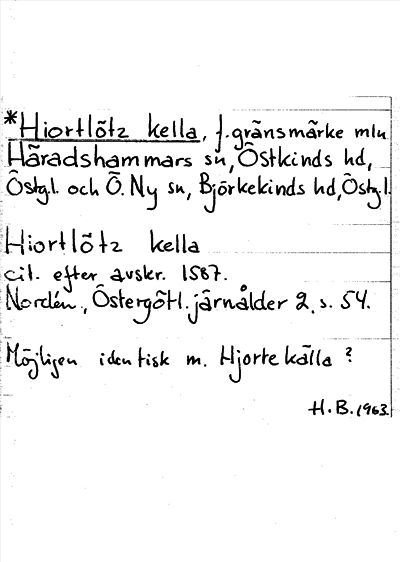 *Hiortlötz kella, f. gränsmärke mln
Häradshammars sn, Östkinds hd,
Östgl. och Ö. Ny sn, Björkekinds hd, Östgl.
Hiortlötz kella
cit. efter avskr. 1587.
Nordén, Östergötl. järnålder 2, s. 54.
Möjligen identisk m. Hjortekälla?
H.B. 1963.